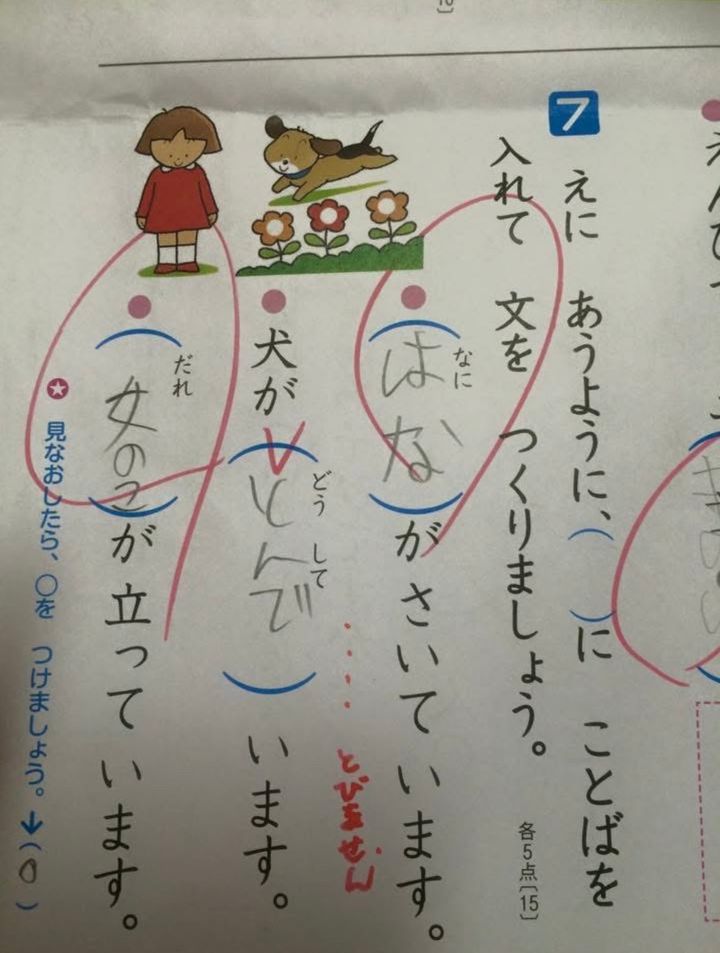 7
えに あうように、( )に ことばを
入れて 文を つくりましょう。
各5点〔15〕
(はな)がさいて います。
なに
‥‥とびません
犬が(とんで) います。
どう して
(女のこ)が 立って います。
だれ
★ 見なおしたら、○を つけましょう。→(○)